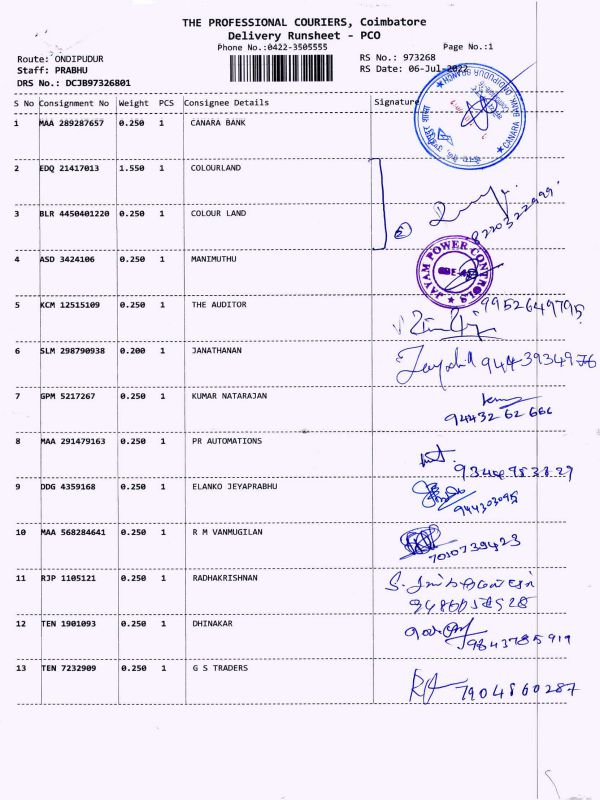 THE PROFESSIONAL COURIERS, Coimbatore
Delivery Runsheet - PCO
Phone No.:0422-3505555
Page No.:1
Route: ONDIPUDUR
RS No.: 973268
Staff: PRABHU
RS Date: 06-Jul-2022
DRS No.: DCJB97326801
S No Consignment No Weight PCS Consignee Details Signature
1 MAA 289287657 0.250 1 CANARA BANK
CANARA BANK ONDIPUDUR BRANCH
2 EDQ 21417013 1.550 1 COLOURLAND
3 BLR 4450401220 0.250 1 COLOUR LAND
2 8220322999
4 ASD 3424106 0.250 1 MANIMUTHU
JAYAM POWER CONTROLS
5 KCM 12515109 0.250 1 THE AUDITOR 9952649795
6 SLM 298790938 0.200 1 JANATHANAN 9443934976
7 GPM 5217267 0.250 1 KUMAR NATARAJAN
94432 62 666
8 MAA 291479163 0.250 1 PR AUTOMATIONS
9 DDG 4359168 0.250 1 ELANKO JEYAPRABHU
944303095
10 MAA 568284641 0.250 1 R M VANMUGILAN
7010739423
11 RJP 1105121 0.250 1 RADHAKRISHNAN
12 TEN 1901093 0.250 1 DHINAKAR
9843785919
13 TEN 7232909 0.250 1 G S TRADERS
7904860287